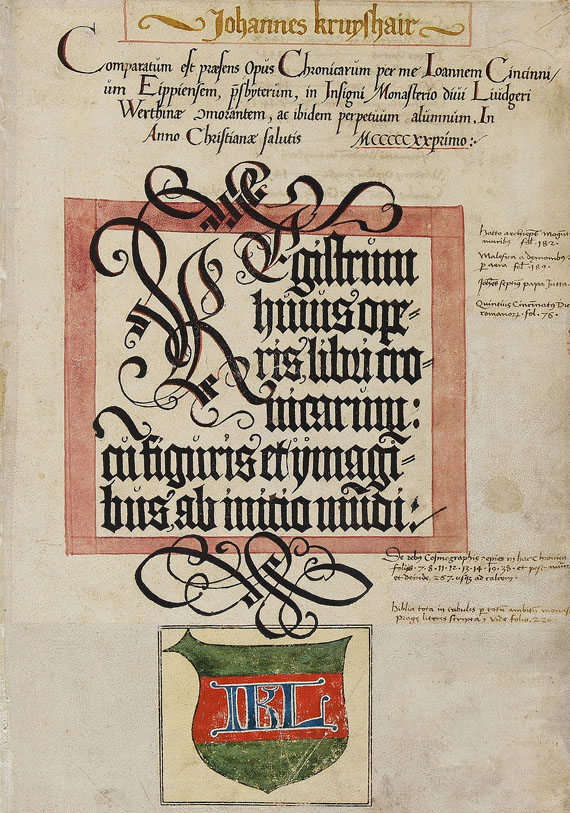 Johannes kruyshair
Comparatum est præsens Opus Chronicarum per me Ioannem Cincinni/
um Lippiensem, p̄sbyterum, in Insigni Monasterio diui Luidgeri
Werthinæ ↄmorantem, ac ibidem perpetuum alumnum. In
Anno Christianæ salutis MCCCCCxxprimo:
REgistrum
huius ope=
ris, libri cro=
nicarum:
cū figuris et ymagī=
bus, ab initio mūdi:
Hatto archiep̄s Mogūt
muribus fol. 182.
Malefica a demonibus
p aera fol. 189.
Joh̄es septiꝰ papa Jutta.
Quintius Cincinatꝰ Dic
romanorꝝ. fol. 76.
De rebꝰ Cosmographie in hac Chronica
folijs. 7. 8. 11. 12. 13. 14. 19. 33. et post
et deinde. 267. usqꝫ ad calcem.
Biblia tota in tabulis p totū ambitū
Prage literis scripta, vide folio. 230
IKL